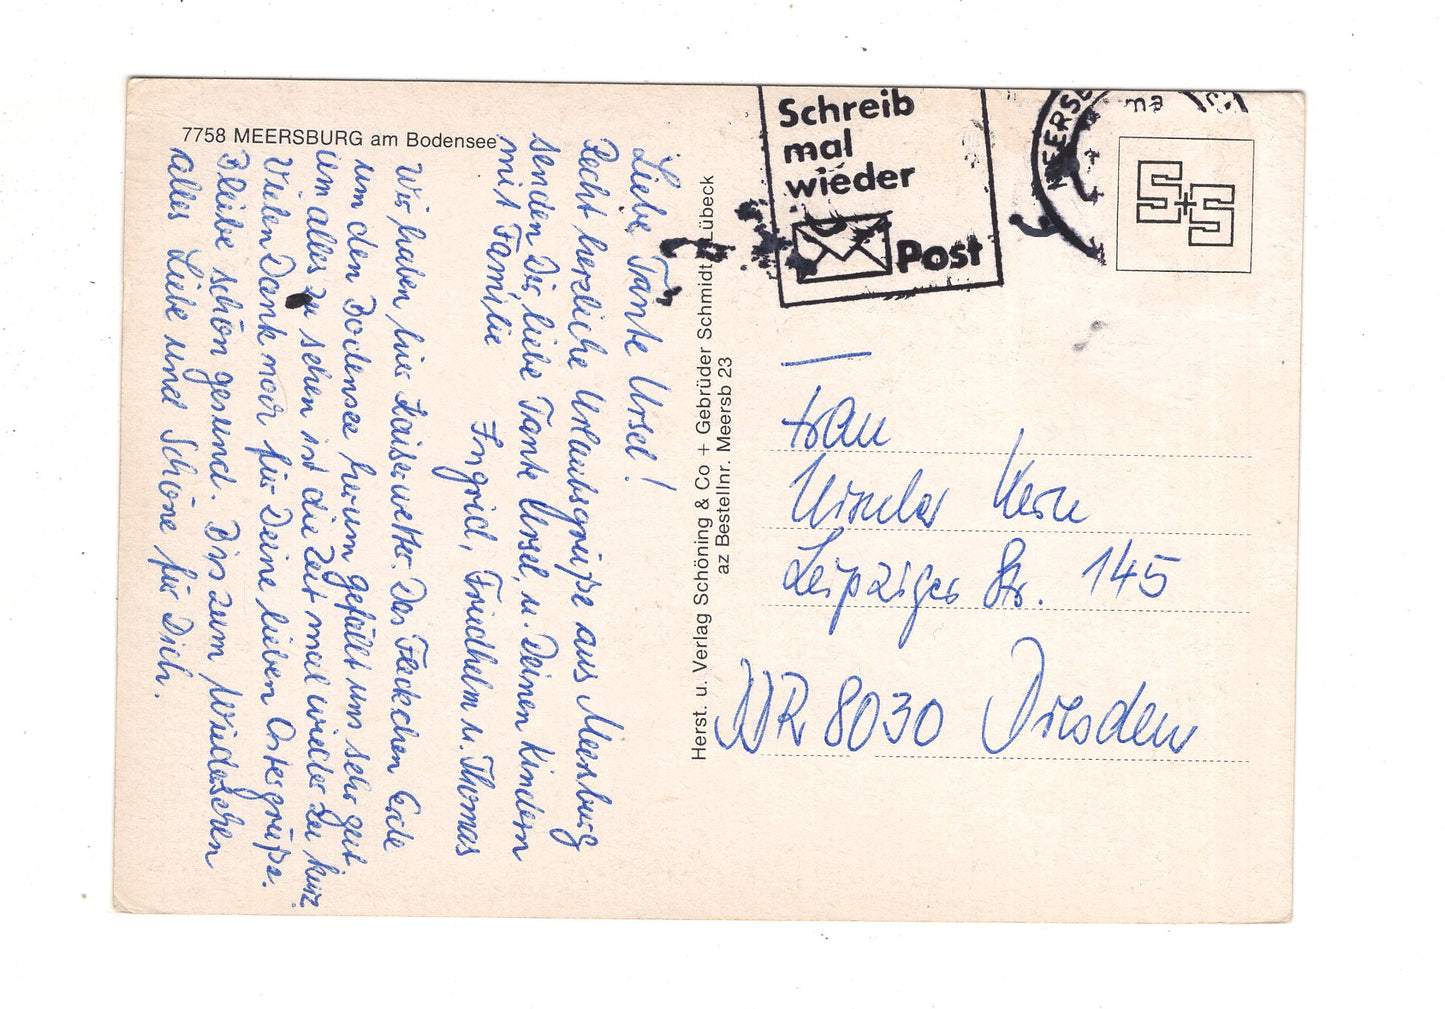 7758 MEERSBURG am Bodensee
Liebe Tante Ursel!
Recht herzliche Urlaubsgrüße aus Meersburg
senden Dir, liebe Tante Ursel, u. Deinen Kindern
mit Familie
Ingrid, Friedhelm u. Thomas
Wir haben hier Kaiserwetter. Das Fleckchen Erde
um den Bodensee herum gefällt uns sehr gut,
um alles zu sehen ist die Zeit mal wieder zu kurz.
Vielen Dank noch für Deine lieben Ostergrüße.
Bleibe schön gesund. Bis zum Wiedersehen
alles Liebe und Schöne für Dich.
Herst. u. Verlag Schöning & Co + Gebrüder Schmidt, Lübeck
az Bestellnr. Meersb 23
Schreib
mal
wieder
Post
MEERSB
S+S
Frau
Ursula Kern
Leipziger Str. 145
8030 Dresden